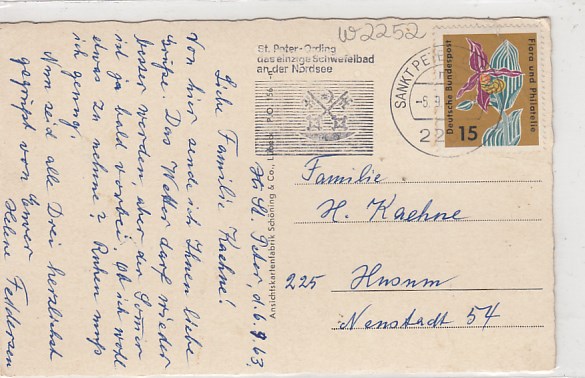 w2252
St. Peter-Ording
das einzige Schwefelbad
an der Nordsee
SANKT PETER
-5.9.
22
Deutsche Bundespost
Flora und Philatelie
15
Familie
H. Kaehne
225 Husum
Neustadt 54
Ansichtskartenfabrik Schöning & Co., Lübeck
St. Peter, d. 6.9.63.
Liebe Familie Kaehne!
Von hier sende ich Ihnen liebe
Grüße. Das Wetter darf wieder
besser werden, aber der Sommer
ist ja bald vorbei. Ob ich wohl
etwas zu nehme? Ruhen muß
ich genug.
Nun seid alle Drei herzlichst
gegrüßt von Eurer
Helene Feddersen